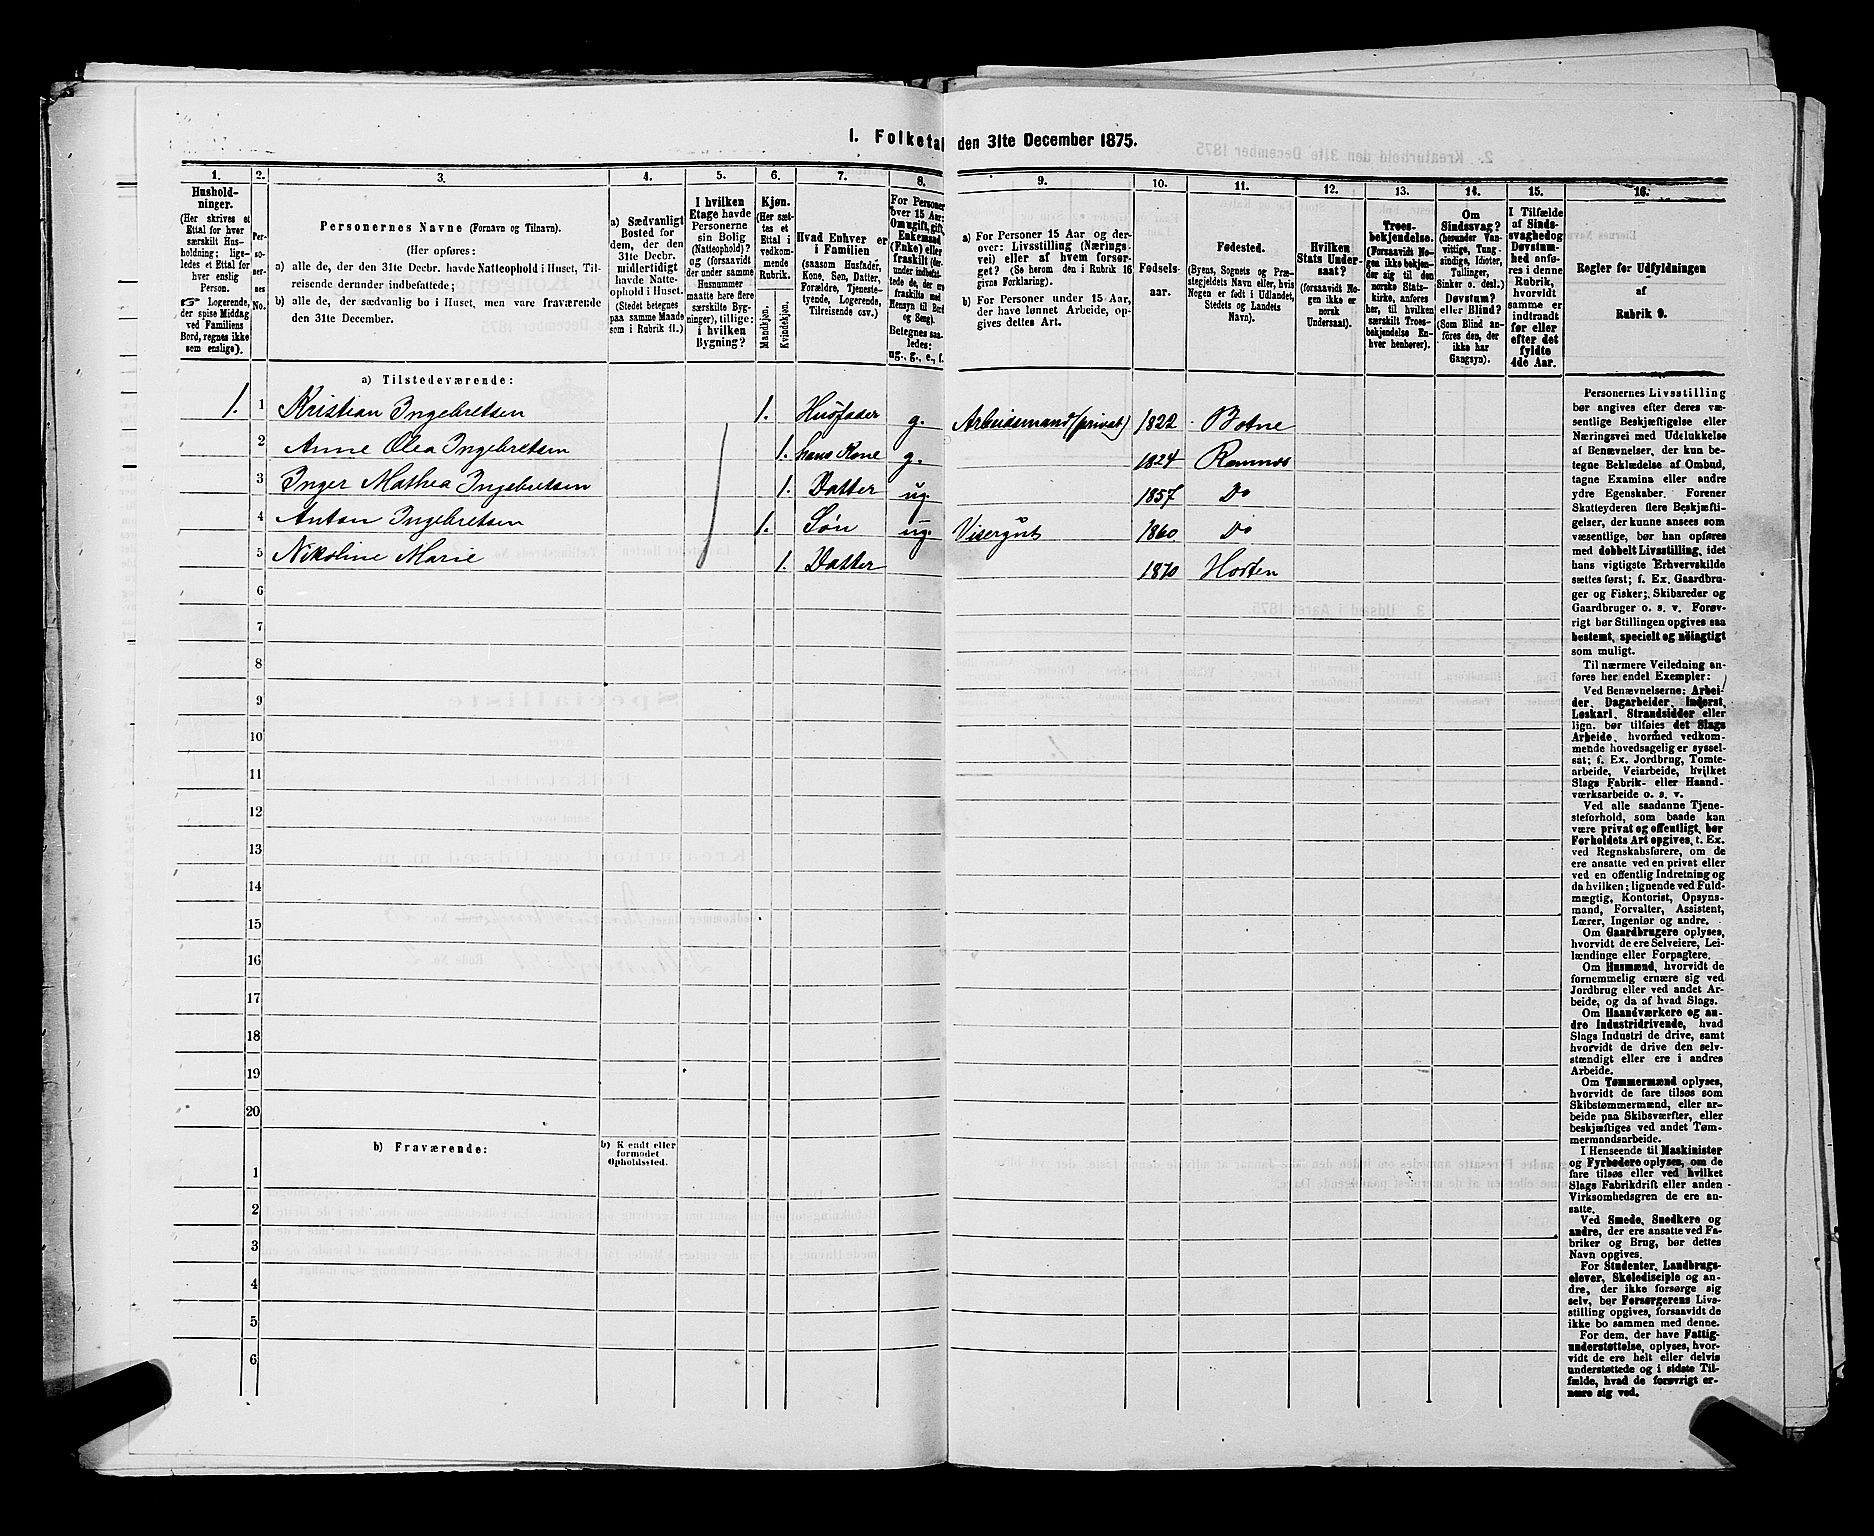 I. Folketal den 31te December 1875.
1. 2. 3. 4. 5. 6. 7. 8. 9. 10. 11. 12. 13. 14. 15. 16.
Hushold-
ninger.
(Her skrives et
Ettal for hver
særskilt Hus-
holdning; lige-
ledes et Ettal for
hver enslig
Person.
☞ Logerende,
der spise Middag
ved Familiens
Bord, regnes ikke
som enslige).
Per-
so-
ner-
nes
No.
Personernes Navne (Fornavn og Tilnavn).
(Her opføres:
a) alle de, der den 31te Decbr. havde Natteophold i Huset, Til-
reisende derunder indbefattede;
b) alle de, der sædvanlig bo i Huset, men vare fraværende
den 31te December.
a) Sædvanligt
Bosted for
dem, der den
31te Decbr.
midlertidigt
havde Natte-
ophold i Huset.
(Stedet betegnes
paa samme Maade
som i Rubrik 11.)
I hvilken
Etage havde
Personerne
sin Bolig
(Natteophold)?
og (forsaavidt
der under samme
Husnummer
maatte høre flere
særskilte Byg-
ninger), tillige:
i hvilken
Bygning?
Kjøn.
(Her sæt-
tes et
Ettal i
vedkom-
mende
Rubrik.
Mandkjøn.
Kvindekjøn.
Hvad Enhver er
i Familien
(saasom Husfader,
Kone, Søn, Datter,
Forældre, Tjeneste-
tyende, Logerende,
Tilreisende osv.)
For Personer
over 15 Aar:
Om ugift, gift,
Enkemand
(Enke) eller
fraskilt
Betegnes saa-
ledes:
ug., g., e., f.
a) For Personer 15 Aar og der-
over: Livsstilling (Nærings-
vei) eller af hvem forsør-
get? (Se herom den i Rubrik 16
givne Forklaring).
b) For Personer under 15 Aar,
der have lønnet Arbeide, op-
gives dettes Art.
Fødsels-
aar.
Fødested.
(Byens, Sognets og Præ-
stegjeldets Navn eller, hvis
Nogen er født i Udlandet,
Stedets og Landets
Navn).
Hvilken
Stats Under-
saat?
(forsaavidt No-
gen ikke er
norsk
Undersaat).
Troes-
bekjendelse.
(Forsaavidt No-
gen ikke bekjen-
der sig til den
norske Stats-
kirke, anføres
her, til hvilken
særskilt Troes-
bekjendelse En-
hver henhører).
Om
Sindssvag?
(herunder Van-
vittige, Tung-
sindige, Idioter,
Tullinger,
Sinker o. desl.)
Døvstum?
eller Blind?
(Som Blind an-
føres den, der
ikke har
Gangsyn).
I Tilfælde
af Sinds-
svaghed og
Døvstum-
hed anfø-
res i denne
Rubrik,
hvorvidt
samme er
indtraadt
før eller
efter det
fyldte
4de Aar.
Regler for Udfyldningen
af
Rubrik 9.
a) Tilstedeværende:
1. 1 Kristian Ingebretsen 1. Husfader g. Arbeidsmand (privat) 1822 Botne
2 Anne Olea Ingebretsen 1. hans Kone g. 1824 Ramnes
3 Inger Mathea Ingebretsen 1. Datter ug. 1857 Do
4 Anton Ingebretsen 1. Søn ug. Visergut 1860 Do
5 Nikoline Marie 1. Datter 1870 Horten
6
7
8
9
10
11
12
13
14
15
16
17
18
19
20
b) Fraværende: b) Kjendt eller
formodet
Opholdssted.
1
2
3
4
5
6
Personernes Livsstilling
bør angives efter deres væ-
sentlige Beskjæftigelse eller
Næringsvei med Udelukkelse
af Benævnelser, der kun be-
tegne Beklædelse af Ombud,
tagne Examina eller andre
ydre Egenskaber. Forener
Skatteyderen flere Beskjæfti-
gelser, der kunne ansees som
væsentlige, bør han opføres
med dobbelt Livsstilling, idet
hans vigtigste Erhvervskilde
sættes først; f. Ex. Gaardbru-
ger og Fisker; Skibsreder og
Gaardbruger o. s. v. Forøv-
rigt bør Stillingen opgives saa
bestemt, specielt og nöiagtigt
som muligt.
Til nærmere Veiledning an-
føres her endel Exempler:
Ved Benævnelserne: Arbei-
der, Dagarbeider, Inderst,
Løskarl, Strandsidder eller
lign. bør tilføies det Slags
Arbeide, hvormed vedkom-
mende hovedsagelig er syssel-
sat; f. Ex. Jordbrug, Tomte-
arbeide, Veiarbeide, hvilket
Slags Fabrik- eller Haand-
værksarbeide o. s. v.
Ved alle saadanne Tjene-
steforhold, som baade kan
være privat og offentligt, bør
Forholdets Art opgives, t. Ex.
ved Regnskabsførere, om de
ere ansatte ved en privat eller
ved en offentlig Indretning og
da hvilken; lignende ved Fuld-
mægtig, Kontorist, Opsyns-
mand, Forvalter, Assistent,
Lærer, Ingeniør og andre.
Om Gaardbrugere oplyses,
hvorvidt de ere Selveiere, Lei-
lændinge eller Forpagtere.
Om Husmænd, hvorvidt de
fornemmelig ernære sig ved
Jordbrug eller ved andet Ar-
beide, og da af hvad Slags.
Om Haandværkere og an-
dre Industridrivende, hvad
Slags Industri de drive, samt
hvorvidt de drive den selv-
stændigt eller ere i andres
Arbeide.
Om Tømmermænd oplyses,
hvorvidt de fare tilsøs som
Skibstømmermænd, eller ar-
beide paa Skibsværfter, eller
beskjæftiges ved andet Tøm-
mermandsarbeide.
I Henseende til Maskinister
og Fyrbødere oplyses, om de
fare tilsøs eller ved hvilket
Slags Fabrikdrift eller anden
Virksomhedsgren de ere an-
satte.
Ved Smede, Snedkere og
andre, der ere ansatte ved Fa-
briker og Brug, bør dettes
Navn opgives.
For Studenter, Landbrugs-
elever, Skoledisciple og an-
dre, der ikke forsørge sig
selv, bør Forsørgerens Livs-
stilling opgives, forsaavidt de
ikke bo sammen med denne.
For dem, der have Fattig-
understøttelse, oplyses, hvor-
vidt de ere helt eller delvis
understøttede og i sidste Til-
fælde, hvad de forøvrigt er-
nære sig ved.